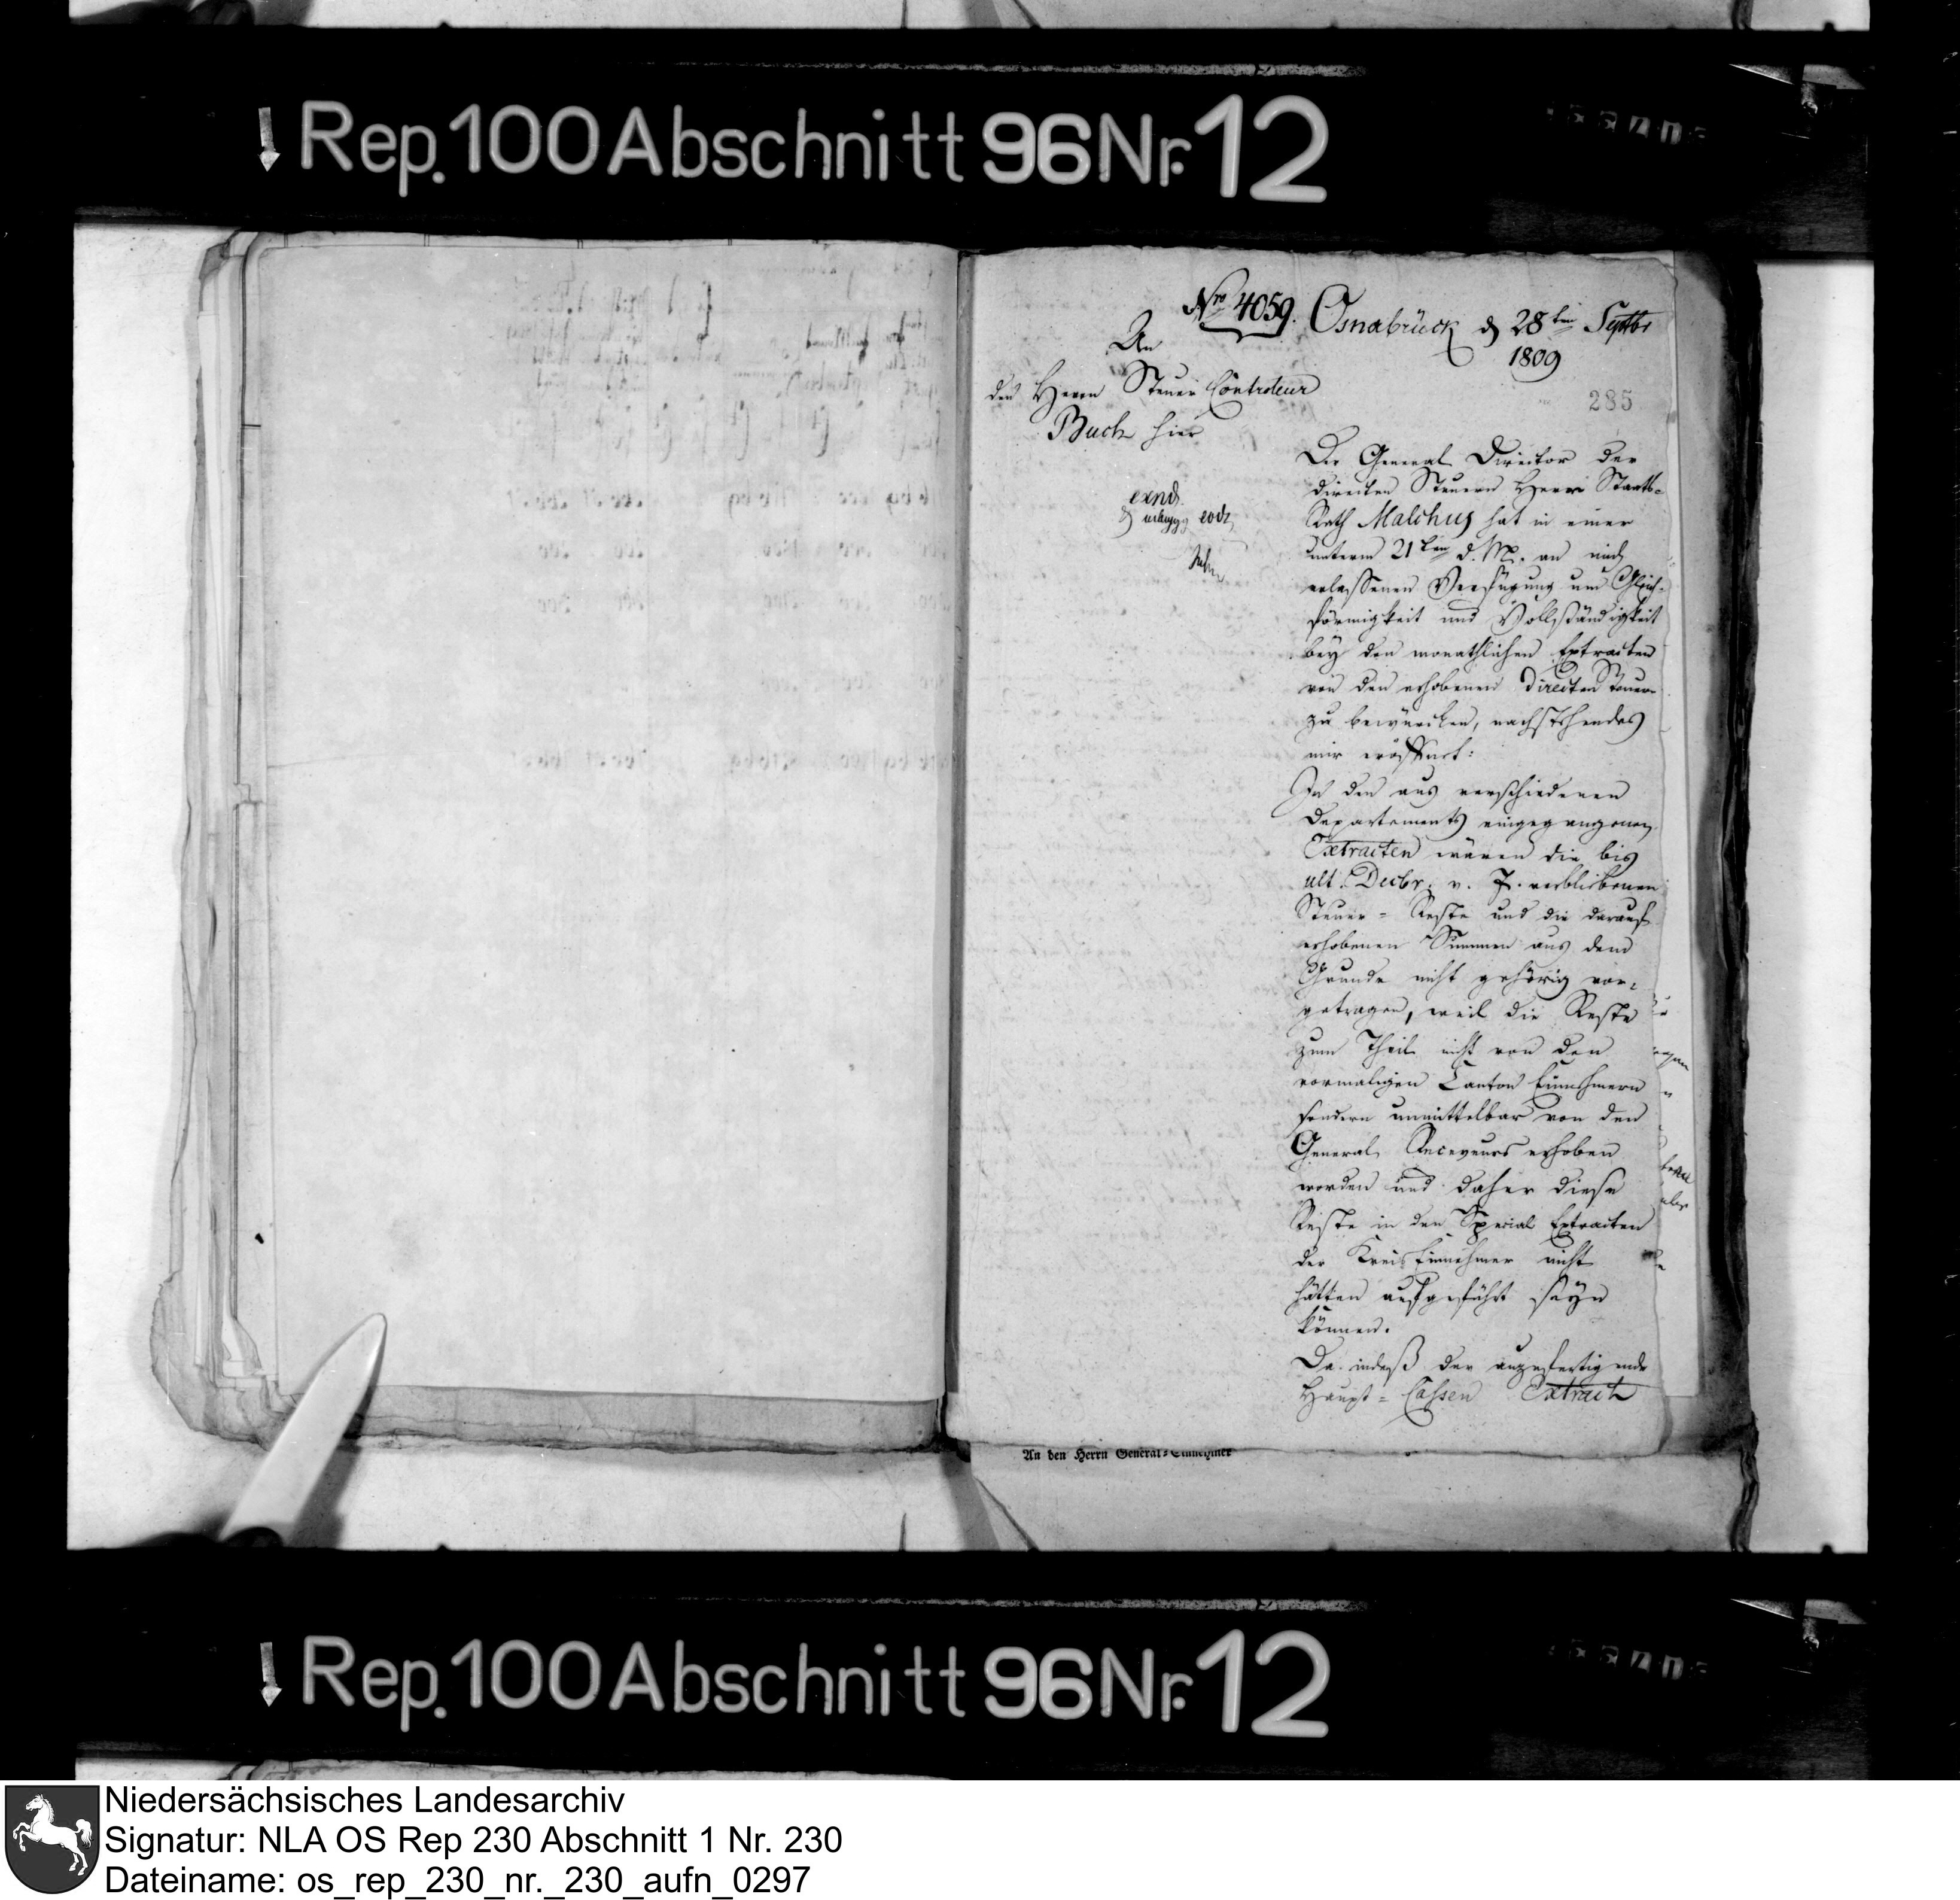 Rep. 100 Abschnitt 96 Nr. 12
Nro 4059. Osnabrück d 28ten Septbr
1809
An
den Herrn Steuer Controleur
Buch hier
285
exnd.
eod.
Der General Director der
directen Steuern Herr Staats-
Rath Malchus hat in einer
unterm 21ten d. M. an mich
erlassenen Verfügung um Gleich-
förmigkeit und Vollständigkeit
bey den monathlichen Extracten
von den erhobenen directen Steuern
zu bewürcken, nachstehendes
mir eröffnet:
In den aus verschiedenen
Departements eingegangenen
Extracten wären die bis
ult. Decbr. v. J. verbliebenen
Steuer-Reste und die darauf
erhobenen Summen aus dem
Grunde nicht gehörig vor-
getragen, weil die Reste
zum Theil nicht von den
vormaligen Canton Einnehmern
sondern unmittelbar von den
General Receveurs erhoben
worden und daher diese
Reste in den Special Extracten
der Kreis Einnehmer nicht
hätten aufgeführt seyn
können.
Da indeß der anzufertigende
Haupt-Cassen Extract
An den Herrn General-Einnehmer
Rep. 100 Abschnitt 96 Nr. 12
Niedersächsisches Landesarchiv
Signatur: NLA OS Rep 230 Abschnitt 1 Nr. 230
Dateiname: os_rep_230_nr._230_aufn_0297